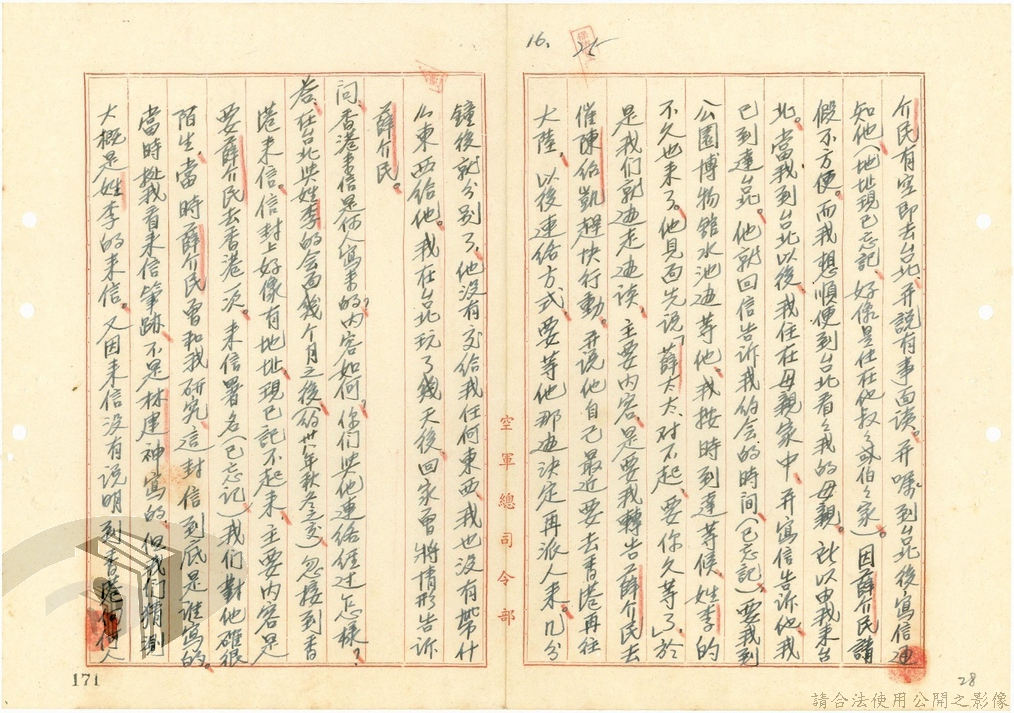 16.
25
介民有空即去台北，并說有事面談。并囑到台北後，寫信通
知他（地址現已忘記，好像是住在他叔叔或伯伯家）因薛介民請
假不方便。而我想順便到台北看看我的母親。所以由我來台
北。當我到台北以後，我住在母親家中，并寫信告訴他，我
已到達台北。他就回信告訴我約會的時間（已忘記），要我到
公園博物館水池边等他，我按時到達等候，姓李的
不久也來了。他見面先說「薛太太，对不起，要你久等了」於
是我们就边走边談，主要內容，是要我轉告薛介民去
催陳紹凱趕快行動。并說他自己最近要去香港再往
大陸，以後連絡方式，要等他那边決定再派人來。几分
鐘後就分別了，他沒有交給我任何東西，我也沒有帶什
么東西給他。我在台北玩了幾天後，回家曾將情形告訴
薛介民。
問、香港來信是何人寫來的？內容如何？你们與他連絡經过怎樣？
答、在台北與姓李的会面幾个月之後（約卅八年秋冬之交）忽接到香
港來信。信封上好像有地址，現已記不起來，主要內容是
要薛介民去香港一次。來信署名（已忘記）我们對他確很
陌生，當時薛介民曾和我研究，這封信到底是誰寫的，
當時 我看來信筆跡，不是林建神寫的，但我们猜測
大概是姓李的來信。又因來信沒有說明到香港 何人
空軍總司令部
171
28
請合法使用公開之影像